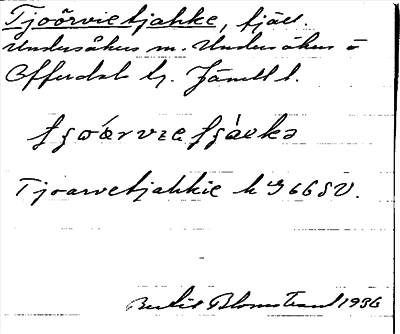 Tjoõrvietjahke, fjäll.
Undersåkers sn. Undersåkers o
Offerdals tg. Jämtl l.
tjoərvie tjåəkə
Tjoarvetjahkie k 966 SV.
Berta Blomstrand 1936